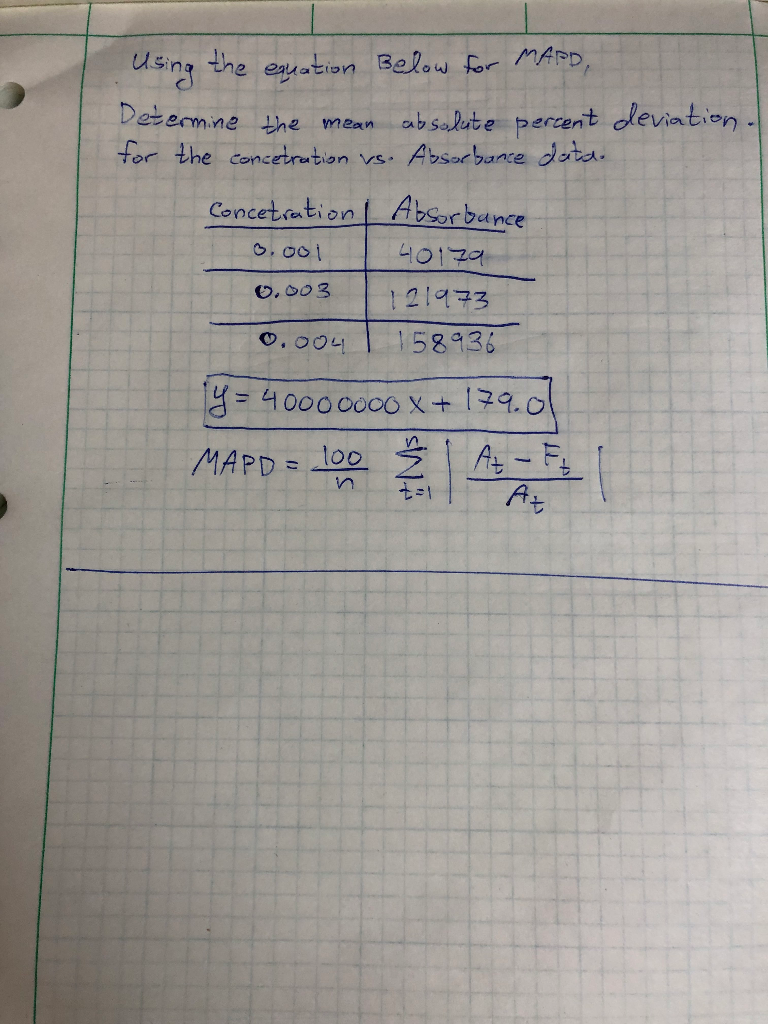 Using the equation Below for MAPD,
Determine the mean absolute percent deviation.
for the concetration vs. Absorbance data.
Concetration | Absorbance
0.001 | 40179
0.003 | 121973
0.004 | 158936
y = 40000000 x + 179.0
MAPD = 100/n n∑t=1 | At - Ft / At |